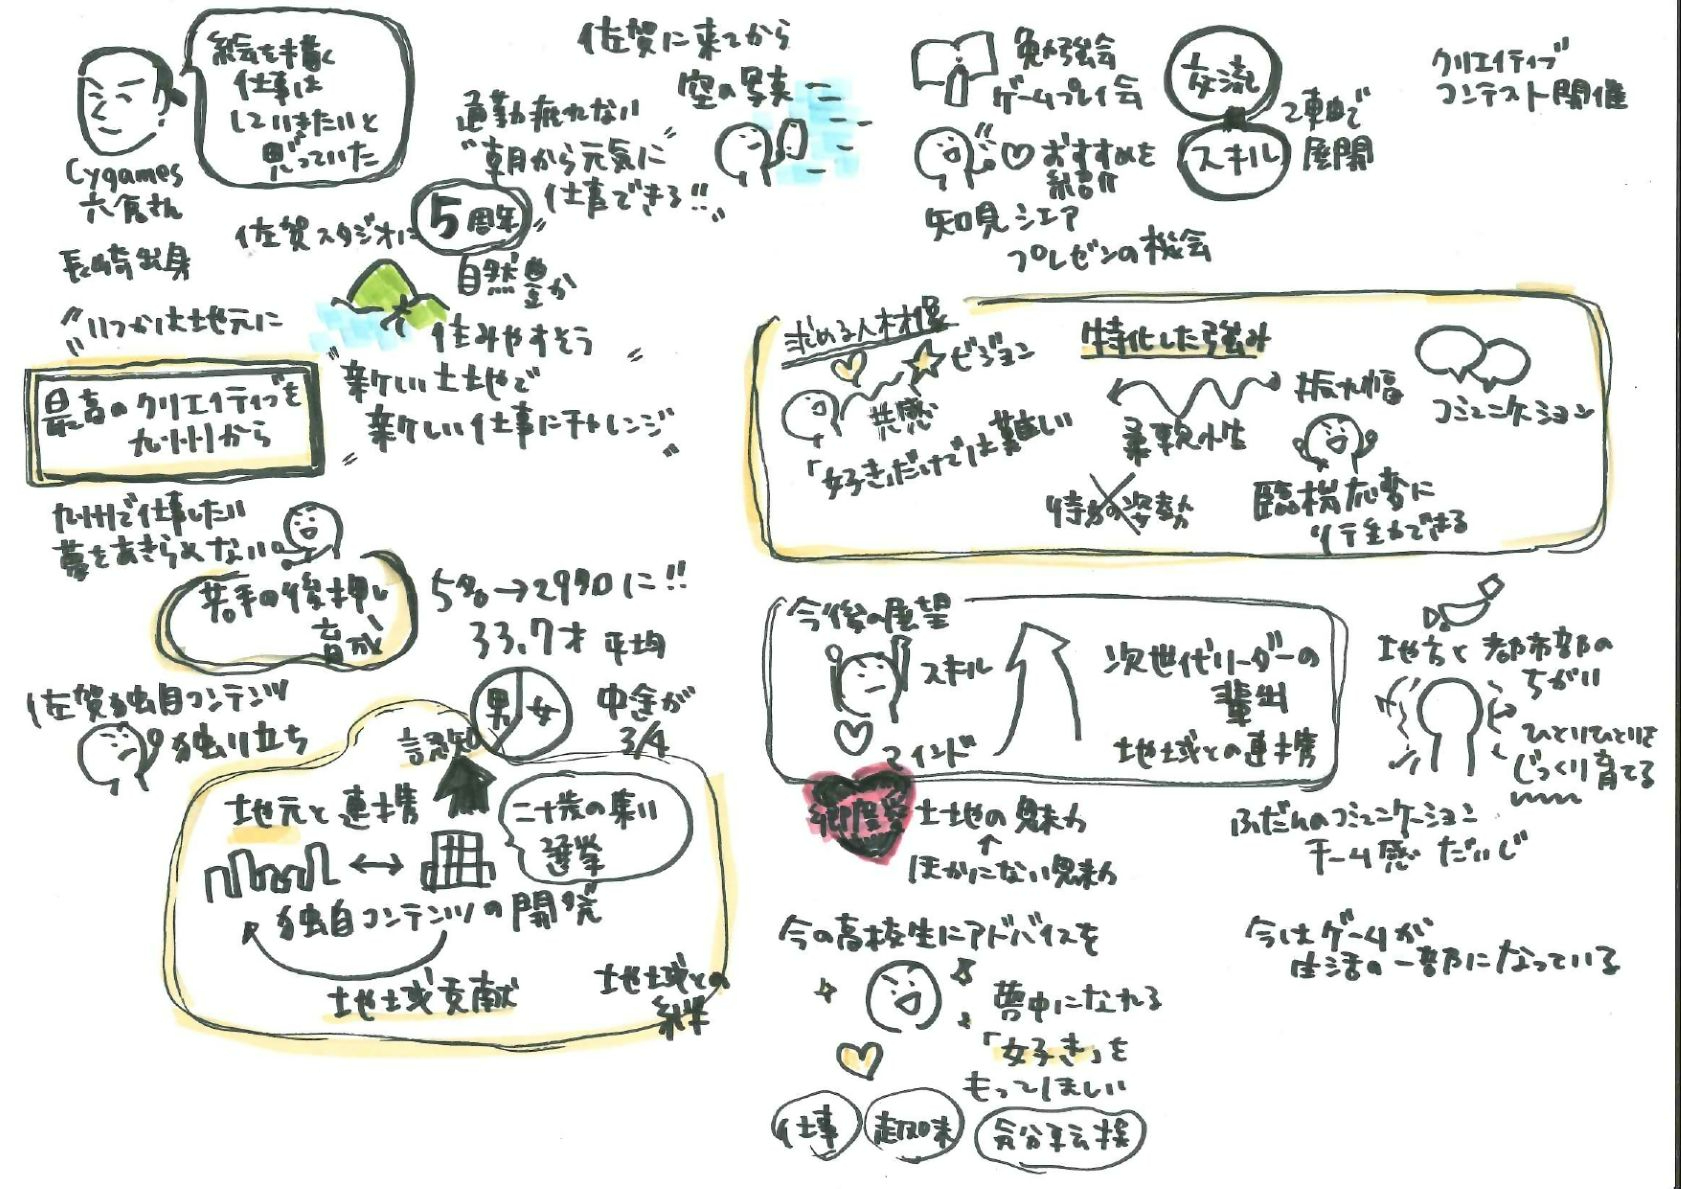 絵を描く
仕事は
していきたいと
思っていた
Cygames
六倉さん
長崎出身
佐賀に来てから
空の写真
通勤疲れない
"朝から元気に
仕事できる!!"
佐賀スタジオに
5周年
自然豊か
住みやすそう
"いつかは地元に
"新しい土地で
新しい仕事にチャレンジ"
最高のクリエイティブを
九州から
九州で仕事したい
夢をあきらめない
若手の後押し
育成
5名→29名に!!
33.7才 平均
男 女
中途が
3/4
佐賀独自コンテンツ
独り立ち
認知
地元と連携
二十歳の集い
選挙
独自コンテンツの開発
地域貢献
地域との
絆
勉強会
ゲームプレイ会
おすすめを
紹介
知見シェア
プレゼンの機会
交流
スキル
2軸で
展開
クリエイティブ
コンテスト開催
求める人材像
ビジョン
共感
「好き」だけでは難しい
特化した強み
振れ幅
柔軟性
コミュニケーション
待ちの姿勢
臨機応変に
行動できる
今後の展望
スキル
マインド
次世代リーダーの
輩出
地域との連携
地方と都市部の
ちがい
ひとりひとりを
じっくり育てる
ふだんのコミュニケーション
チーム感 だいじ
郷土愛
土地の魅力
↑
ほかにない魅力
今の高校生にアドバイスを
夢中になれる
「好き」を
もってほしい
仕事
趣味
気分転換
今はゲームが
生活の一部になっている